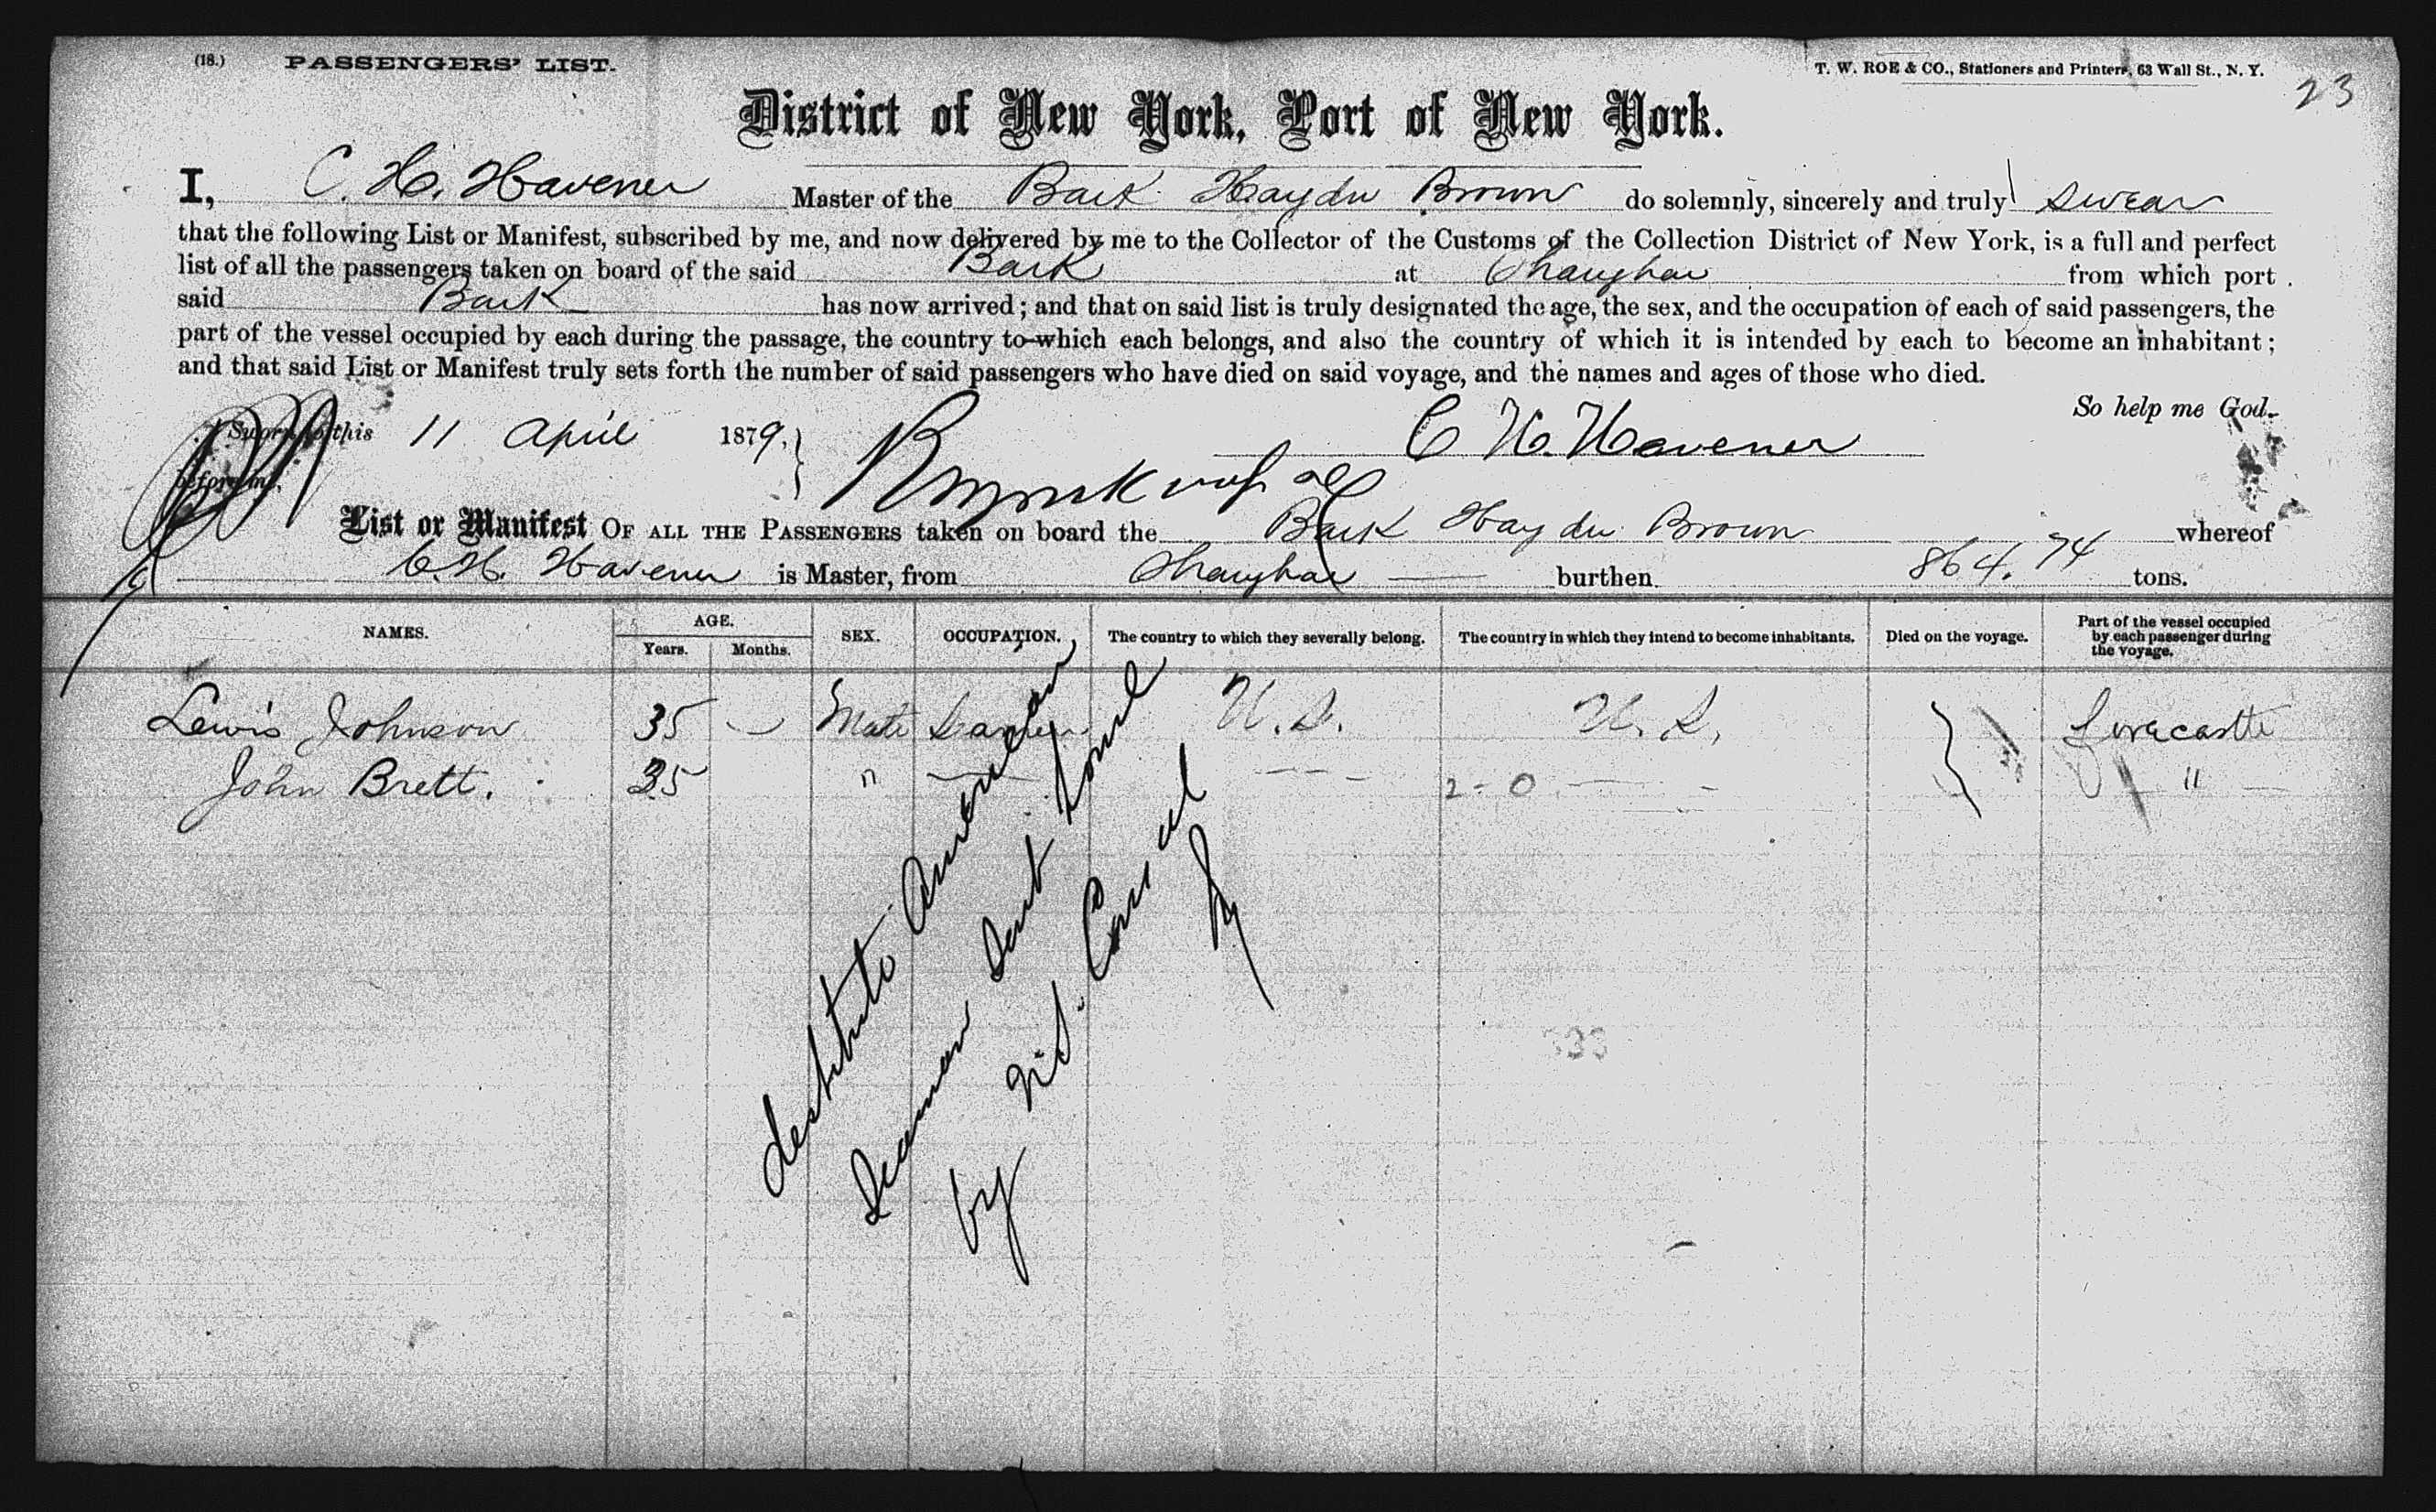 (18.) PASSENGERS' LIST.
T. W. ROE & CO., Stationers and Printers, 63 Wall St., N. Y.
23
District of New York, Port of New York.
I, C. H. Havener Master of the Bark Haydn Brown do solemnly, sincerely and truly swear
that the following List or Manifest, subscribed by me, and now delivered by me to the Collector of the Customs of the Collection District of New York, is a full and perfect
list of all the passengers taken on board of the said Bark at Shanghai from which port
said Bark has now arrived; and that on said list is truly designated the age, the sex, and the occupation of each of said passengers, the
part of the vessel occupied by each during the passage, the country to which each belongs, and also the country of which it is intended by each to become an inhabitant;
and that said List or Manifest truly sets forth the number of said passengers who have died on said voyage, and the names and ages of those who died.
So help me God.
Sworn to this 11 April 1879. C H. Havener
before me,
List or Manifest OF ALL THE PASSENGERS taken on board the Bark Haydn Brown whereof
C. H. Havener is Master, from Shanghai burthen 864.74 tons.
NAMES. AGE. Years. Months. SEX. OCCUPATION. The country to which they severally belong. The country in which they intend to become inhabitants. Died on the voyage. Part of the vessel occupied by each passenger during the voyage.
Lewis Johnson 35 — Male Seamen U.S. U.S. Forecastle
John Brett. 35 " — — — — 2 - 0 — - "
destitute American
Seamen Sent home
by U.S. Consul